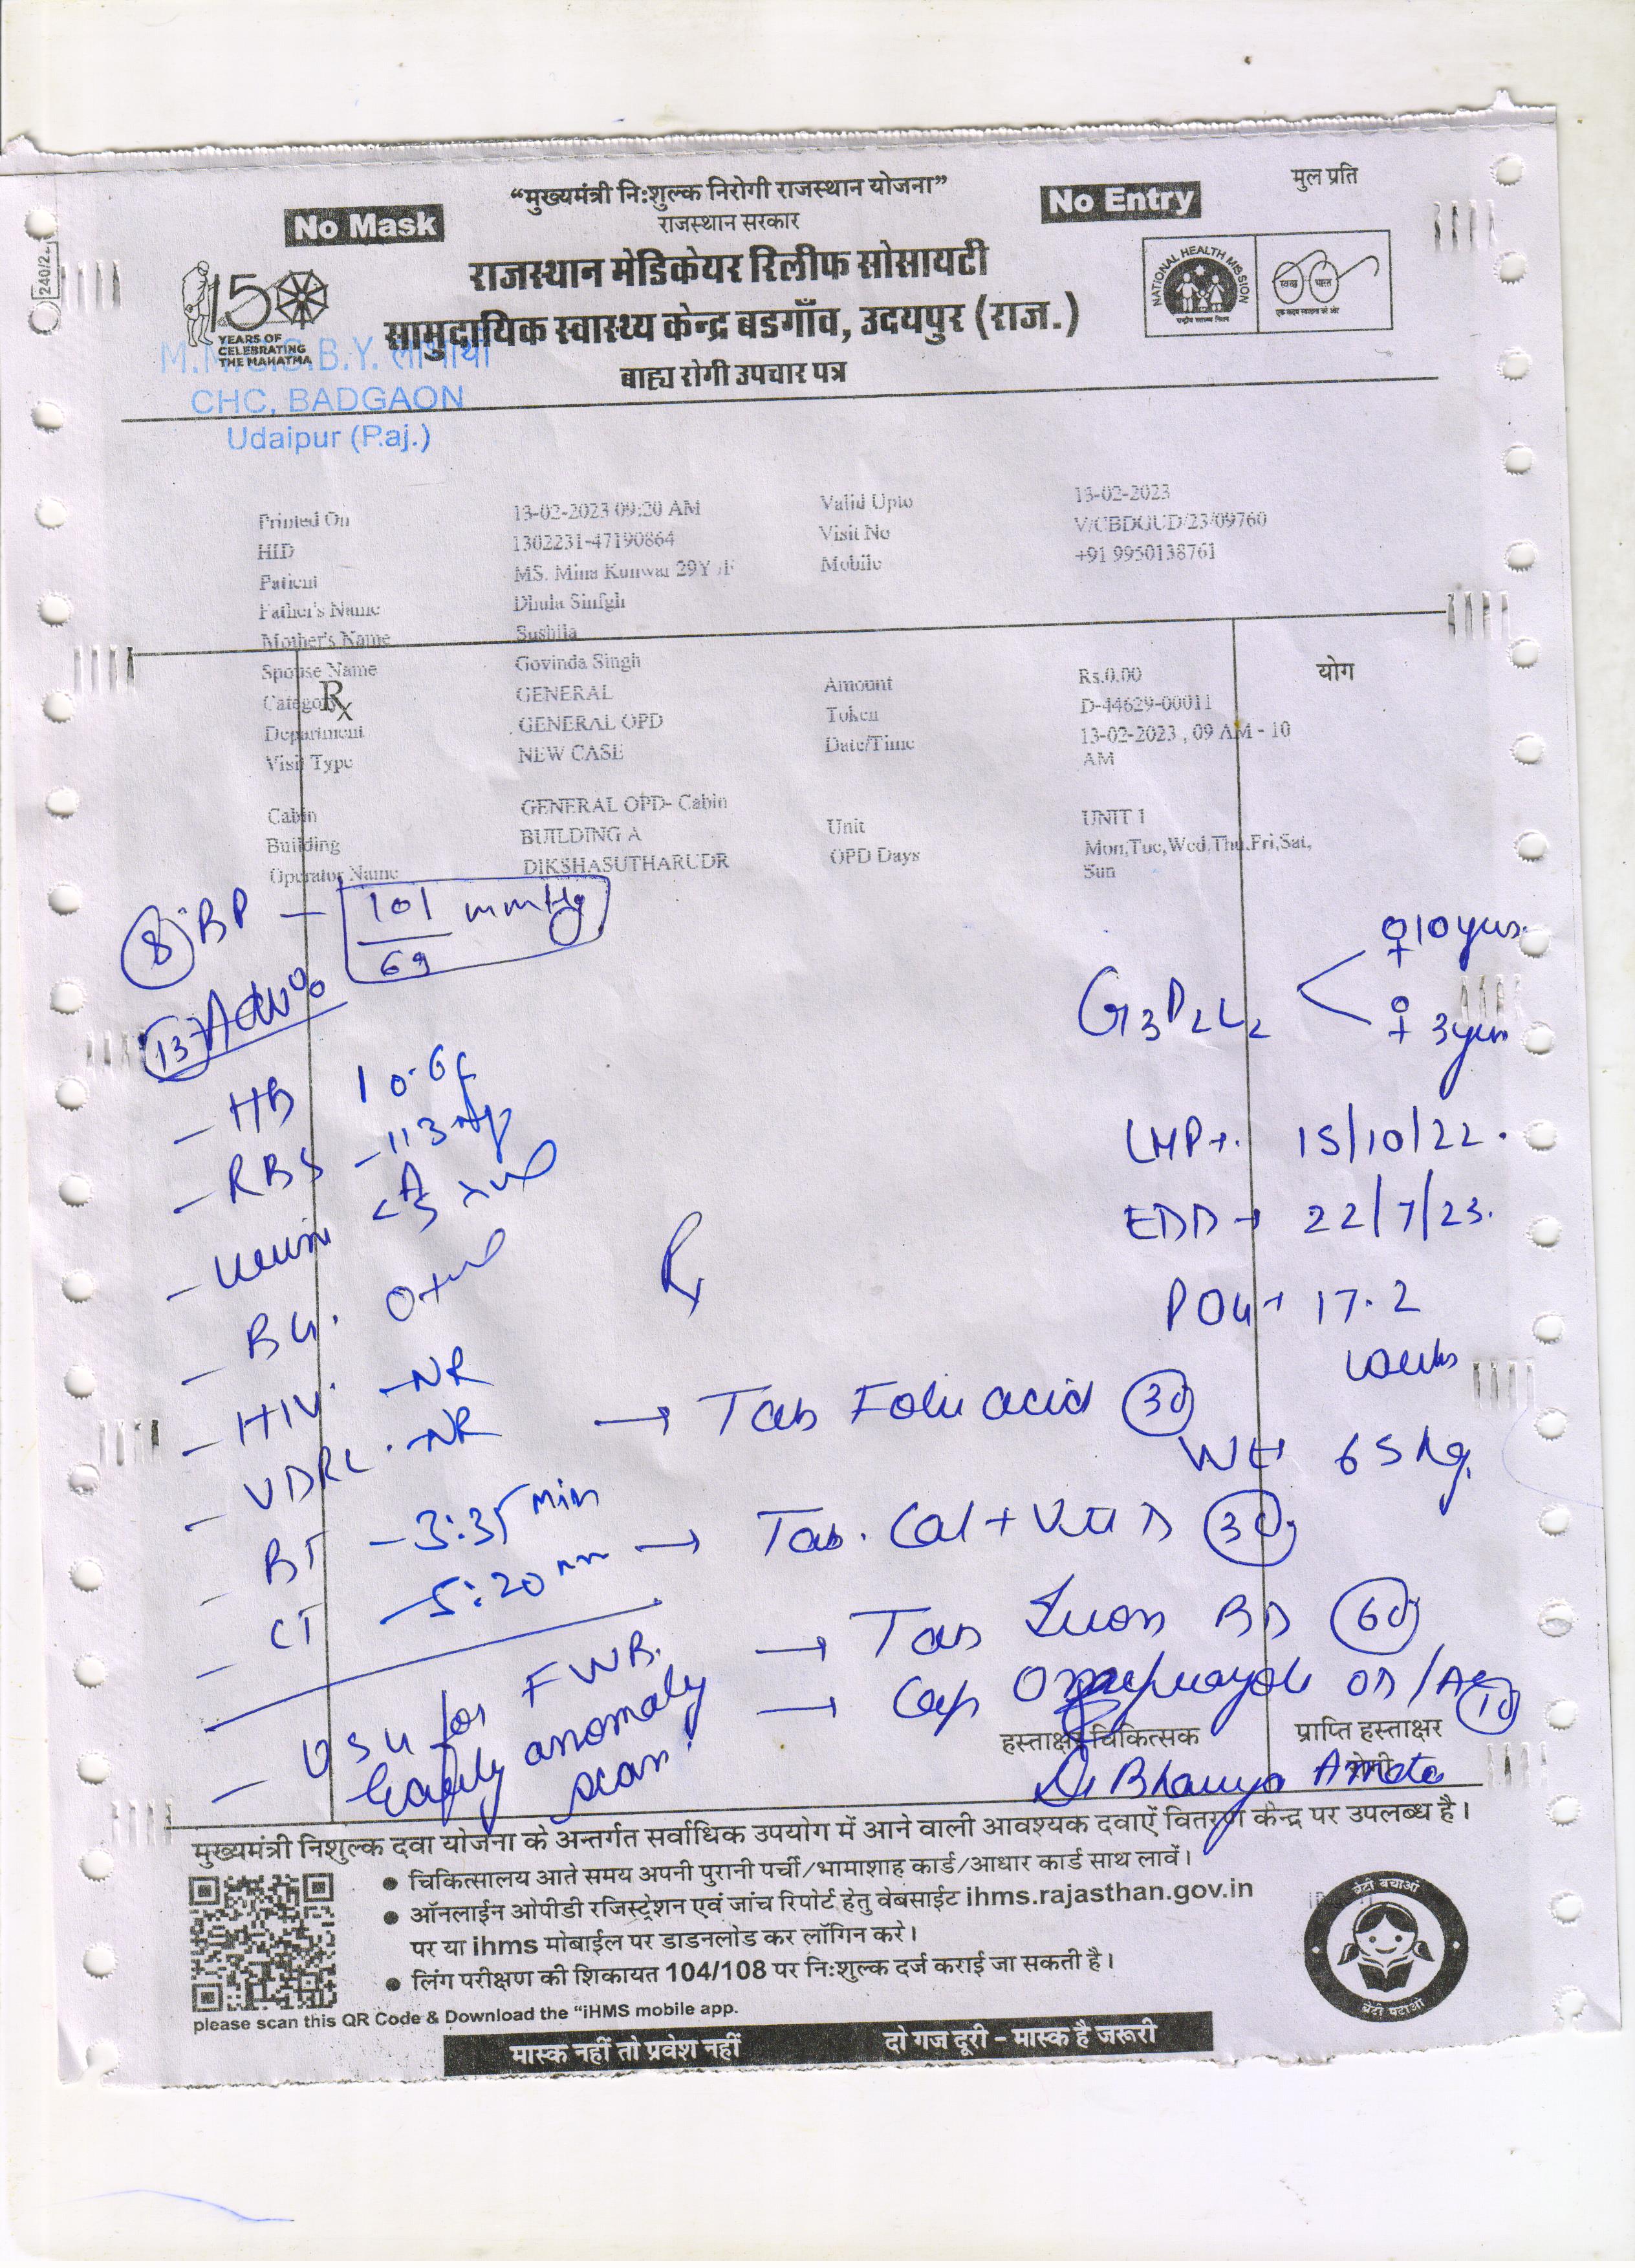 "मुख्यमंत्री नि:शुल्क निरोगी राजस्थान योजना"
मुल प्रति
No Mask
No Entry
राजस्थान सरकार
राजस्थान मेडिकेयर रिलीफ सोसायटी
सामुदायिक स्वास्थ्य केन्द्र बडगाँव, उदयपुर (राज.)
बाह्य रोगी उपचार पत्र
150
YEARS OF
CELEBRATING
THE MAHATMA
NATIONAL HEALTH MISSION
राष्ट्रीय स्वास्थ्य मिशन
स्वच्छ भारत
एक कदम स्वच्छता की ओर
240/2
B.Y. लाभार्थी
CHC, BADGAON
Udaipur (Raj.)
Printed On 13-02-2023 09:20 AM Valid Upto 13-02-2023
HID 1302231-47190864 Visit No V/CBDGUD/23/09760
Patient MS. Mina Kunwar 29Y /F Mobile +91 9950138761
Father's Name Dhula Sinfgh
Mother's Name Sushila
Spouse Name Govinda Singh Amount Rs.0.00
योग
Rx
Category GENERAL Token D-44629-00011
Department GENERAL OPD Date/Time 13-02-2023 , 09 AM - 10 AM
Visit Type NEW CASE
Cabin GENERAL OPD- Cabin Unit UNIT 1
Building BUILDING A OPD Days Mon,Tue,Wed,Thu,Fri,Sat, Sun
Operator Name DIKSHASUTHARUDR
8 BP - 101/69 mmHg
13 Adv
- HB 10.6
- RBS - 113
- Urine
- BG. O+ve
- HIV. - NR
- VDRL. - NR
- BT - 3:35 min
- CT - 5:20 min
- USG for FWB.
Early anomaly
scan
G3P2L2 ♀ 10 yrs
♀ 3 yrs
LMP → 15/10/22.
EDD → 22/7/23.
POG → 17.2
weeks
Wt → 65 kg.
Rx
→ Tab Folic acid 30
→ Tab. Cal + Vit D 30
→ Tab Iron BD 60
→ Cap Omeprazole OD/AC 10
हस्ताक्षर चिकित्सक
प्राप्ति हस्ताक्षर
रोगी
Dr Bhavya Ameta
मुख्यमंत्री निशुल्क दवा योजना के अन्तर्गत सर्वाधिक उपयोग में आने वाली आवश्यक दवाऐं वितरण केन्द्र पर उपलब्ध है।
● चिकित्सालय आते समय अपनी पुरानी पर्ची/भामाशाह कार्ड/आधार कार्ड साथ लावें।
● ऑनलाईन ओपीडी रजिस्ट्रेशन एवं जांच रिपोर्ट हेतु वेबसाईट ihms.rajasthan.gov.in
पर या ihms मोबाईल पर डाडनलोड कर लॉगिन करे।
● लिंग परीक्षण की शिकायत 104/108 पर नि:शुल्क दर्ज कराई जा सकती है।
please scan this QR Code & Download the "iHMS mobile app.
बेटी बचाओ
बेटी पढाओ
मास्क नहीं तो प्रवेश नहीं दो गज दूरी - मास्क है जरूरी